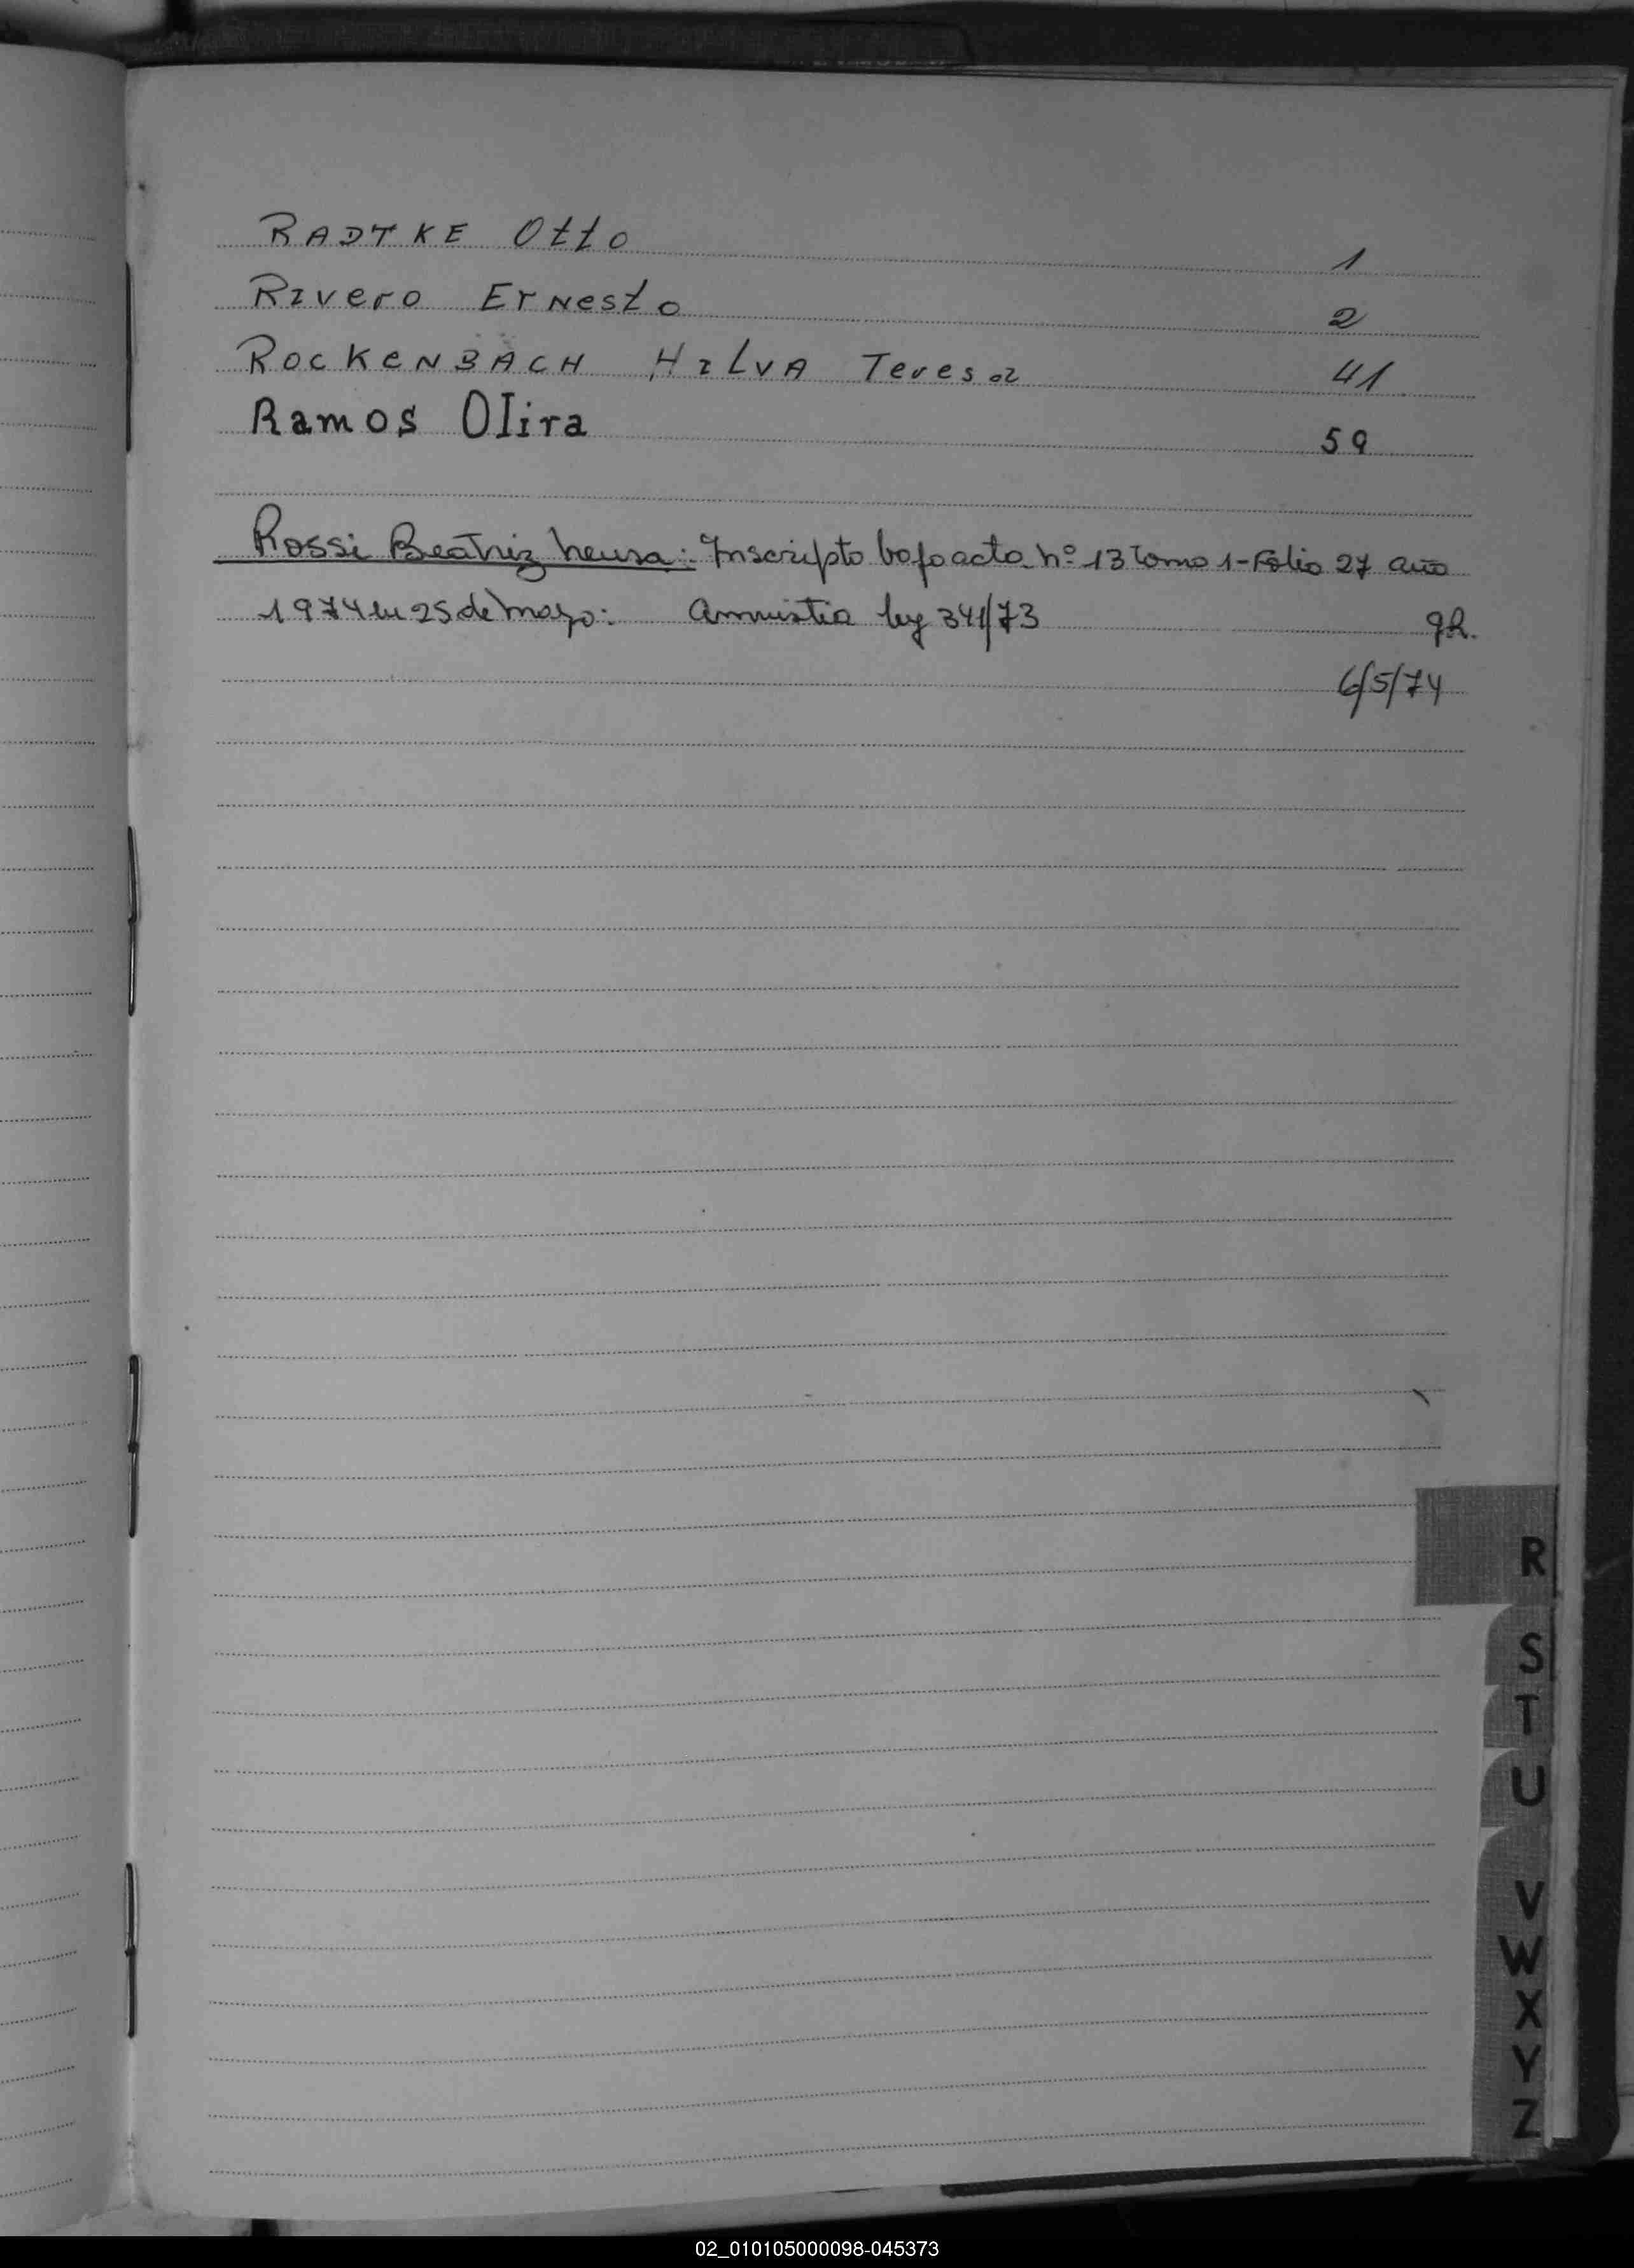 RADTKE Otto 1
Rivero Ernesto 2
ROCKENBACH HilVA Teresa 41
Ramos Olira 59
Rossi Beatriz Neusa: Inscripto bajo acta nº 13 tomo 1-Folio 27 año
1974 en 25 de Mayo: Amnistia ley 341/73
6/5/74
R
S
T
U
V
W
X
Y
Z
02_010105000098-045373